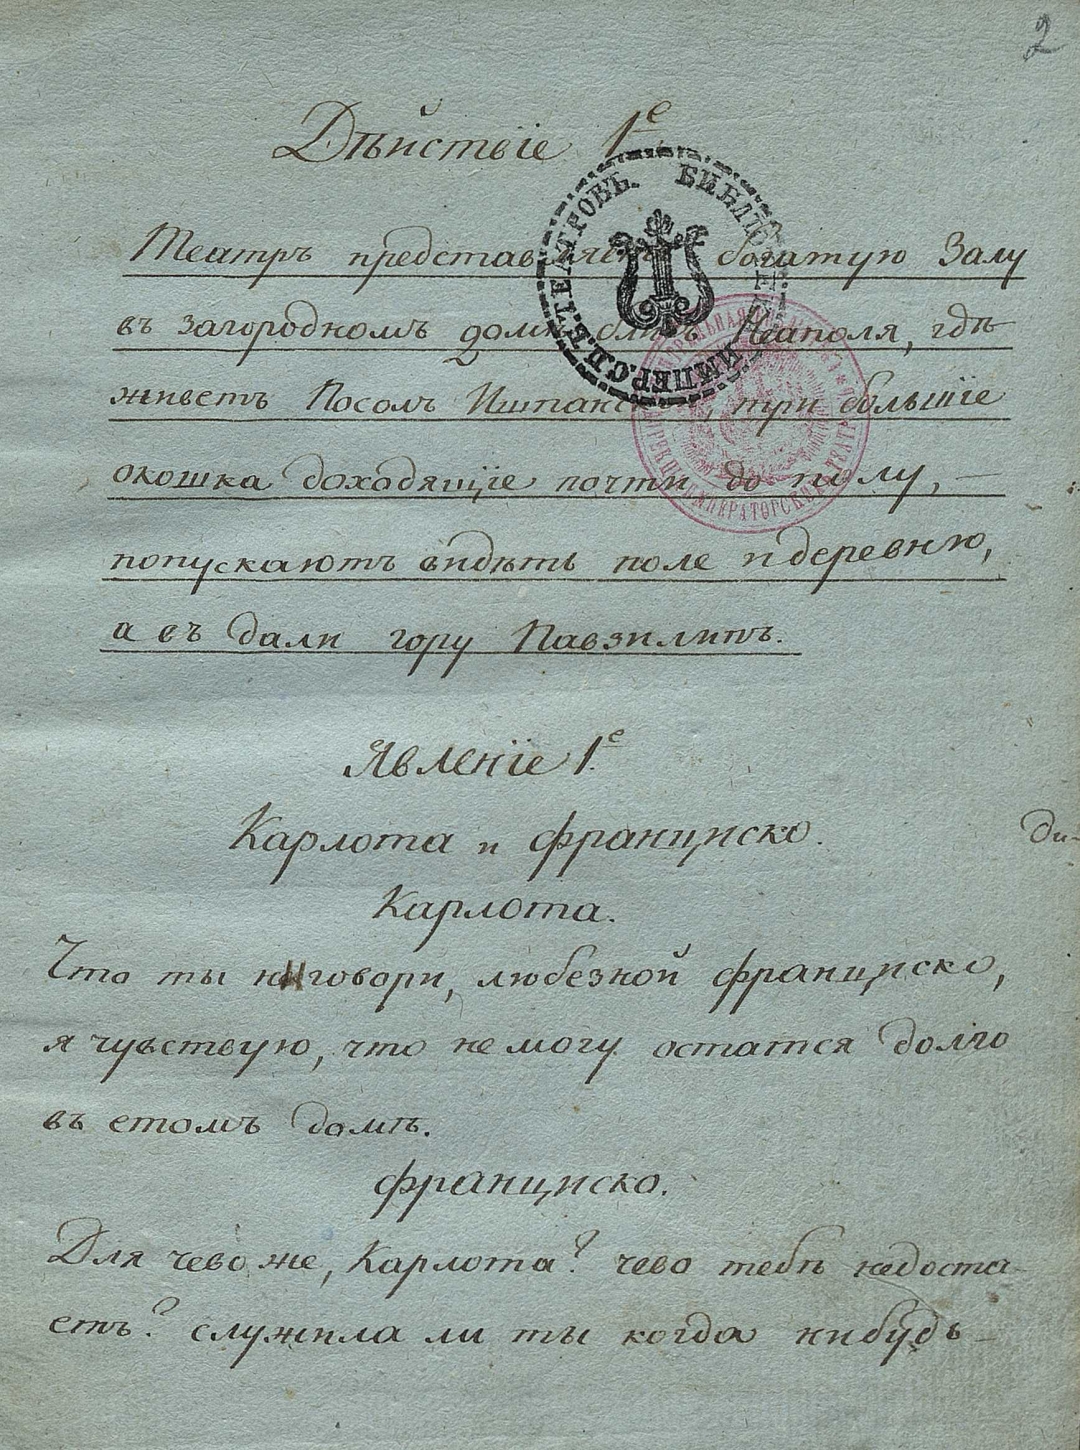 2
Дѣйствіе 1е
Театръ представляетъ богатую Залу
въ загородномъ домѣ близъ Неаполя, гдѣ
живетъ Посолъ Ишпанской, три большіе
окошка доходящіе почти до полу,
попускаютъ видѣть поле и деревню,
а въ дали гору Павзилипъ.
БИБЛІОТЕКА ИМПЕР. С.П.Б. ТЕАТРОВЪ.
Явленіе 1е
Карлота и Франциско.
Ди-
Карлота.
Что ты ни говори, любезной Франциско,
я чувствую, что не могу остатся долго
въ етомъ домѣ.
Франциско.
Для чево же, Карлота? чево тебѣ недоста-
етъ? служила ли ты когда нибудь